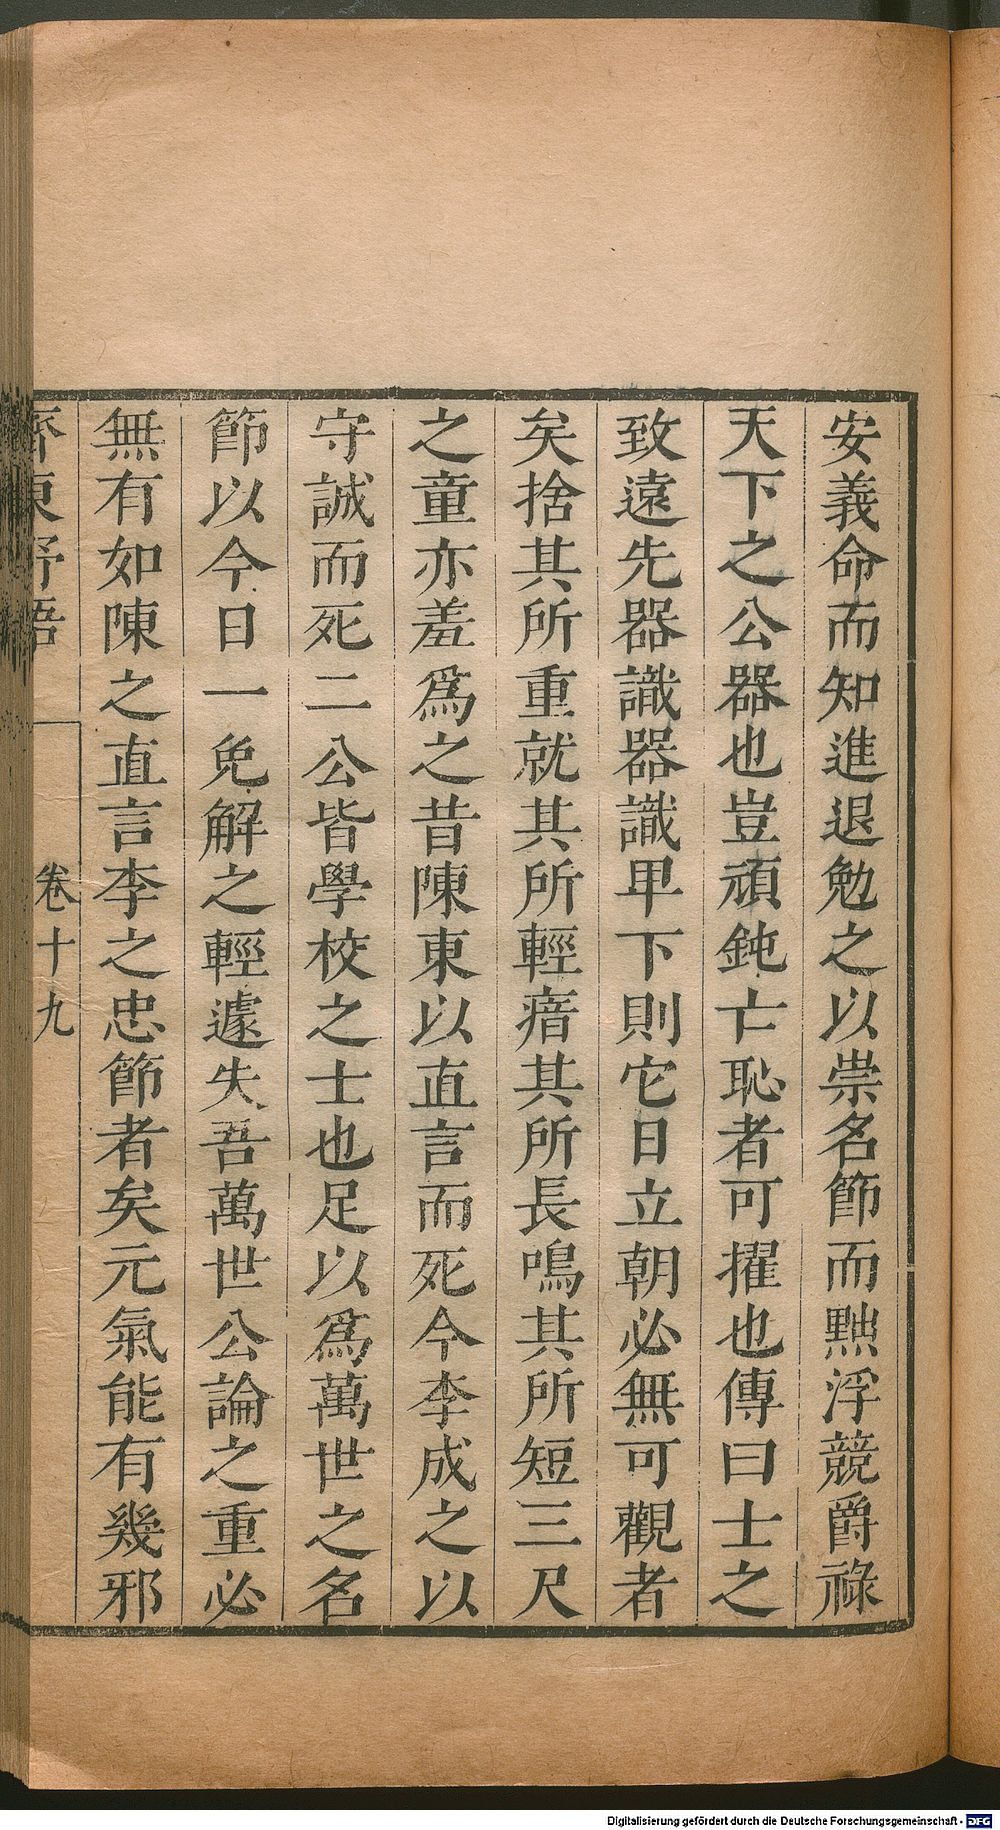 安義命而知進退勉之以崇名節而黜浮競爵祿
天下之公器也豈頑鈍亡恥者可擢也傳曰士之
致遠先器識器識卑下則它日立朝必無可觀者
矣捨其所重就其所輕瘖其所長鳴其所短三尺
之童亦羞爲之昔陳東以直言而死今李成之以
守誠而死二公皆學校之士也足以爲萬世之名
節以今日一免解之輕遽失吾萬世公論之重必
無有如陳之直言李之忠節者矣元氣能有幾邪
齊東野語 卷十九
Digitalisierung gefördert durch die Deutsche Forschungsgemeinschaft - DFG